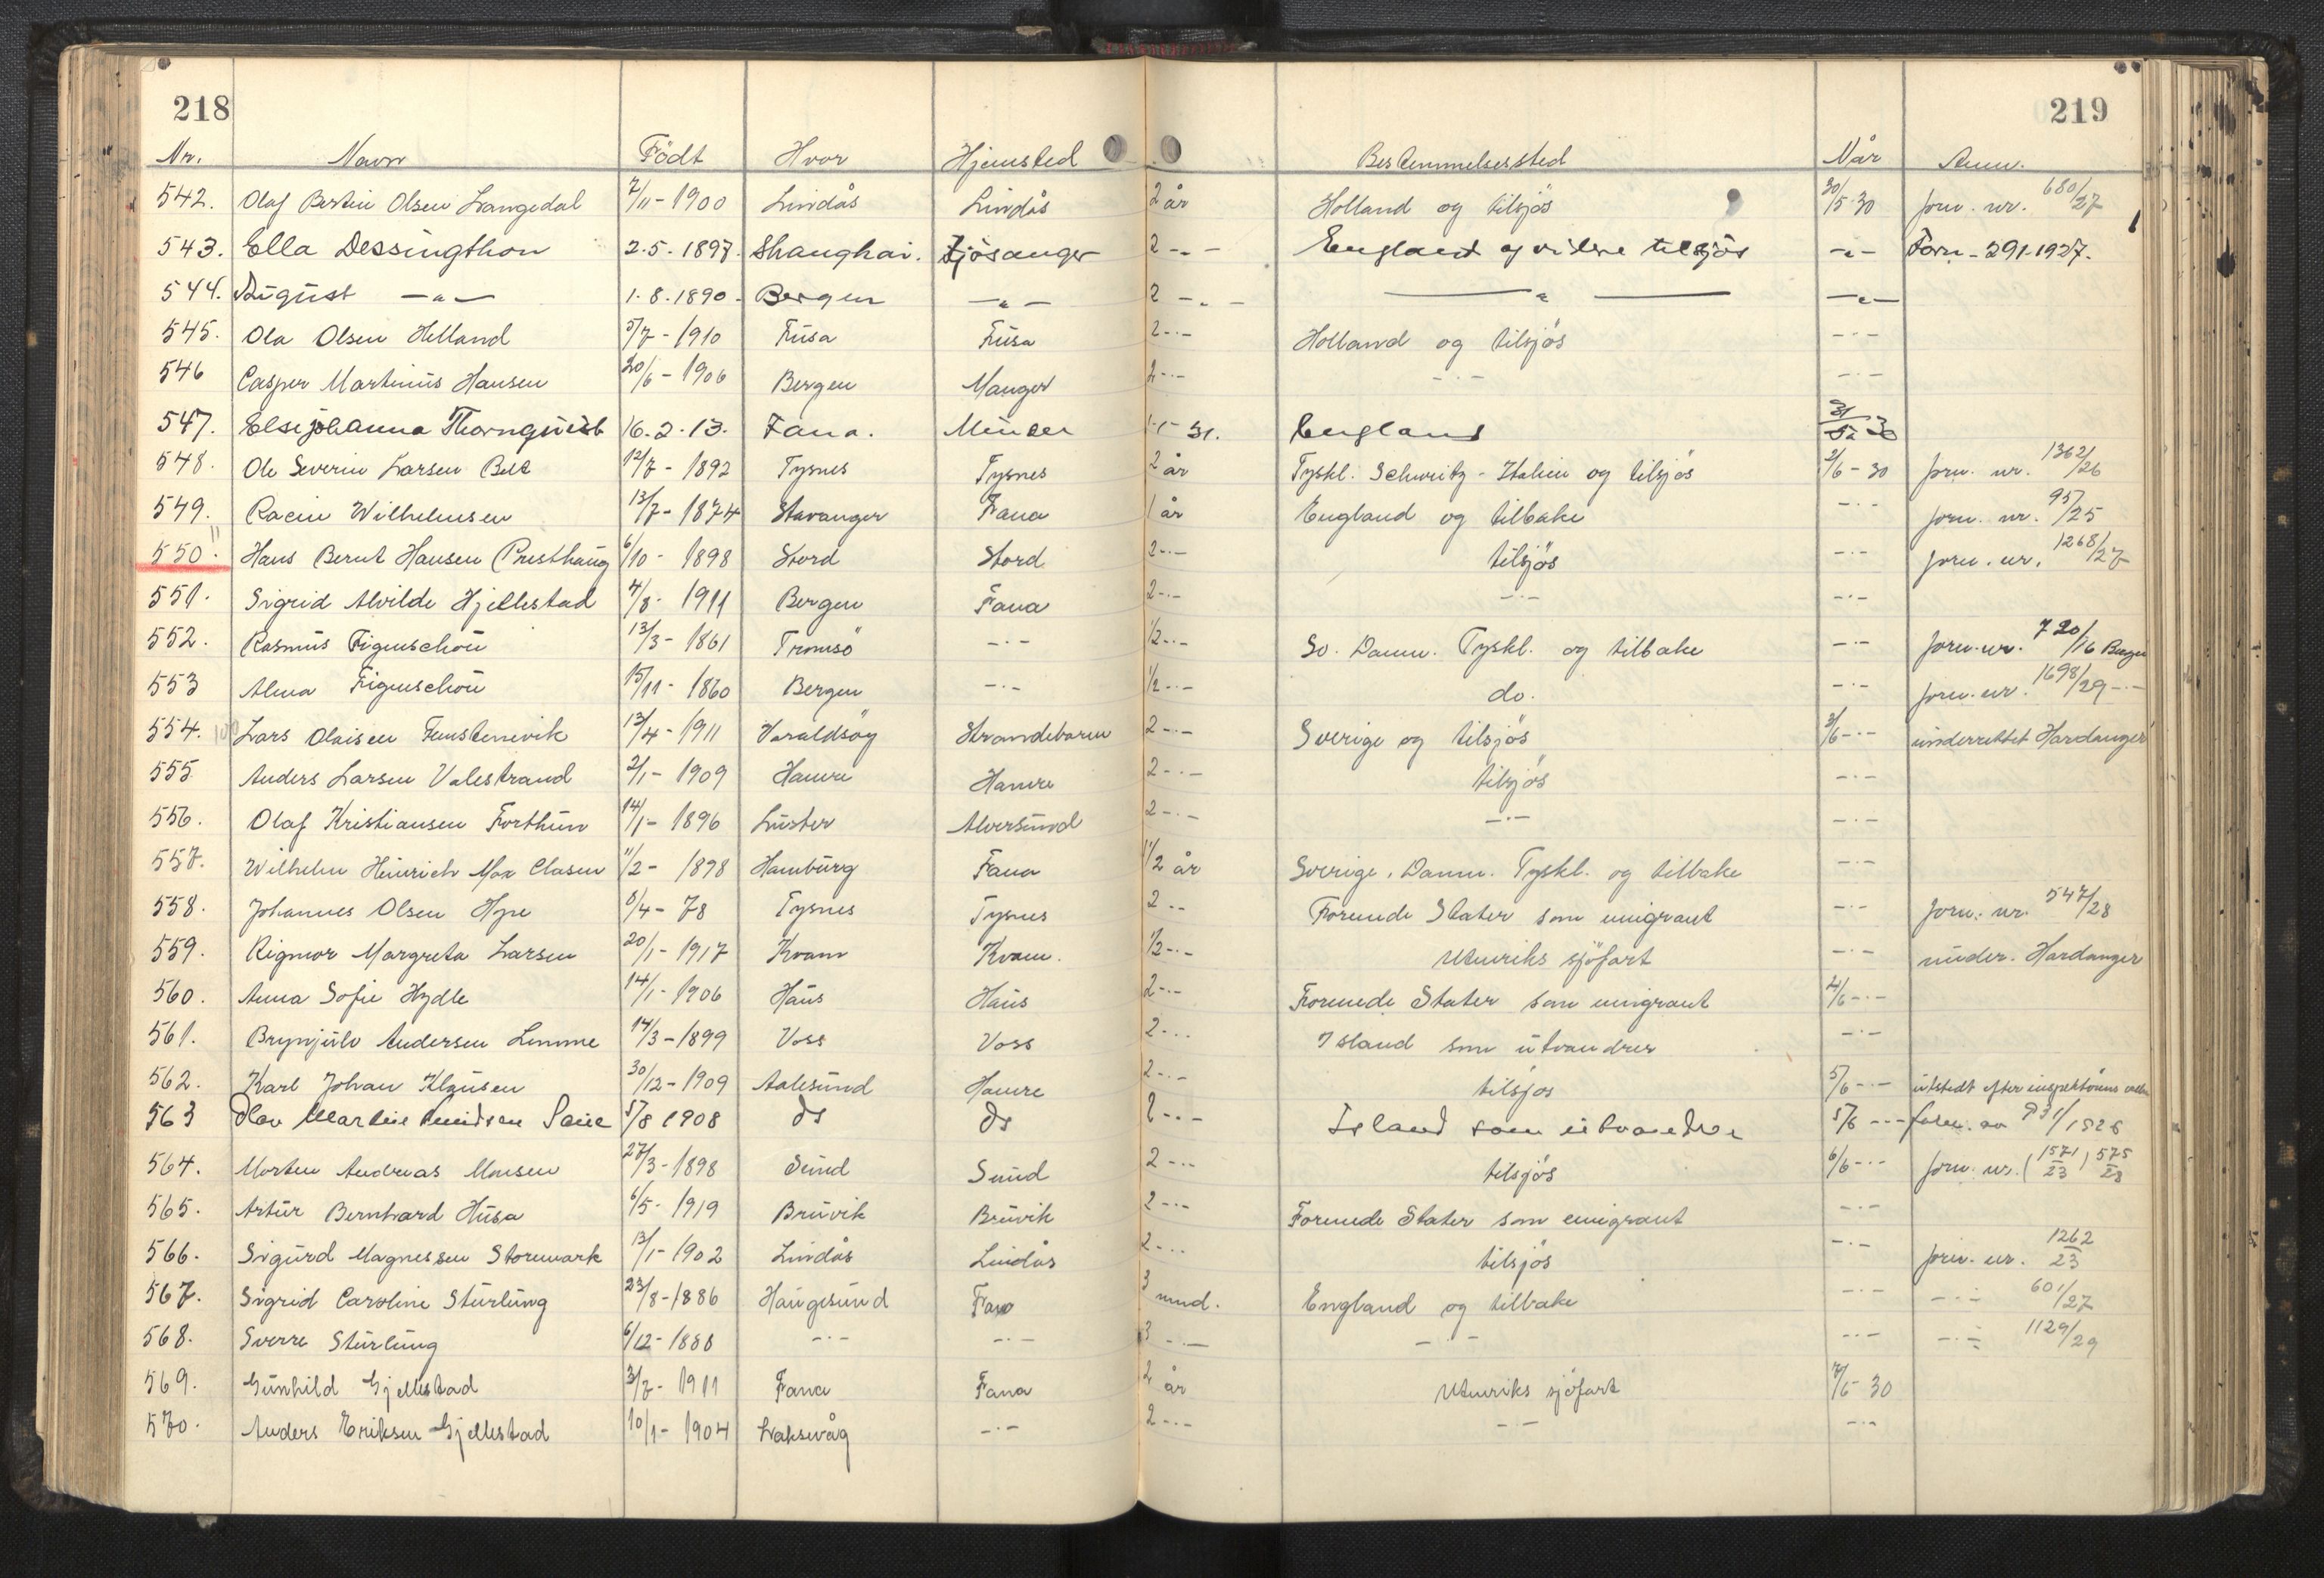 218
219
Nr. Navn Födt Hvor Hjemsted Bestemmelsessted Når Anm.
542. Olaf Bertin Olsen Langedal 7/11-1900 Lindås Lindås 2 år Holland og tilsjös 30/5-30 forn. nr. 680/27
543. Ella Dessingthon 2.5.1897. Shanghai. Fjösanger 2 -"- England og videre tilsjös -"- Forn - 291-1927.
544. August -"- 1.8.1890. Bergen -"- 2 -"- -"- -"-
545. Ola Olsen Helland 5/7-1910 Fusa Fusa 2 -"- Holland og tilsjös -"-
546 Casper Martinus Hansen 20/6-1906 Bergen Manger 2 -"- -"- -"-
547. Else Johanna Thornquist 16.2.13. Fana. 1-1-31. England 31/5-30
548. Ole Severin Larsen 12/7-1892 Tysnes Tysnes 2 år Tyskl. Schweitz - Italien og tilsjös 2/6-30 forn. nr. 1362/26
549. Racin Wilhelmsen 13/7-1874 Stavanger Fana 1 år England og tilbake -"- forn. nr. 95/25
550. Hans Bernt Hansen (Presthaug 6/10-1898 Stord Stord 2 -"- tilsjös -"- forn. nr. 1268/27
551. Sigrid Alvilde Hjellestad 4/8-1911 Bergen Fana 2 -"- -"- -"-
552. Rasmus Figenschou 13/3-1861 Tromsö -"- 1/2 -"- Sv. Danm. Tyskl. og tilbake -"- forn. nr. 720/16 Bergen
553 Alma Figenschou 15/11-1860 Bergen -"- 1/2 -"- do. -"- forn. nr. 1698/29 -"-
554. Lars Olaisen 13/4-1911 Haraldsöy Strandebarm 2 -"- Sverige og tilsjös 3/6 -"- underrettet Hardanger
555 Anders Larsen Valestrand 2/1-1909 Hamre Hamre 2 -"- tilsjös -"-
556. Olaf Kristiansen Forthun 14/1-1896 Luster Alversund 2 -"- -"- -"-
557. Wilhelm Heinrich Max Clasen 11/2-1898 Hamburg Fana 1 1/2 år Sverige, Danm. Tyskl. og tilbake -"-
558. Johannes Olsen Hype 8/4-78 Tysnes Tysnes 2 -"- Forenede Stater som emigrant -"- forn. nr. 547/28
559. Rigmor Margreta Larsen 20/1-1917 Kvam Kvam. 1/2 -"- Utenriks sjöfart -"- under. Hardanger
560. Anna Sofie Hydle 14/1-1906 Haus Haus 2 -"- Forenede Stater som emigrant 4/6 -"-
561. Brynjulv Andersen Lemme 14/3-1899 Voss Voss 2 -"- Island som utvandrer -"-
562. Karl Johan Klausen 30/12-1909 Aalesund Hamre 2 -"- tilsjös 5/6 -"- utstedt efter inspektörens
563 Olav Martin Knudsen 5/8 1908 Os Os 2 -"- Island som utvandrer 5/6 -"- forn. nr 931/1926
564. Morten Andreas Monsen 27/3-1898 Sund Sund 2 -"- tilsjös 6/6 -"- forn. nr. (1571/23) 575/28
565. Artur Bernhard Husa 6/5-1919 Bruvik Bruvik 2 -"- Forenede Stater som emigrant -"-
566. Sigurd Magnessen Storemark 13/1-1902 Lindås Lindås 2 -"- tilsjös -"- forn. nr. 1262/23
567. Sigrid Caroline Sturlung 23/8-1886 Haugesund Fana 3 mnd. England og tilbake -"- -"- 601/27
568. Sverre Sturlung 6/12-1888 -"- -"- 3 -"- -"- -"- -"- 1129/29
569. Gunhild Gjellestad 3/7-1911 Fana Fana 2 år Utenriks sjöfart 7/6-30
570. Anders Eriksen Gjellestad 10/1-1904 Laksevåg -"- 2 -"- -"- -"-